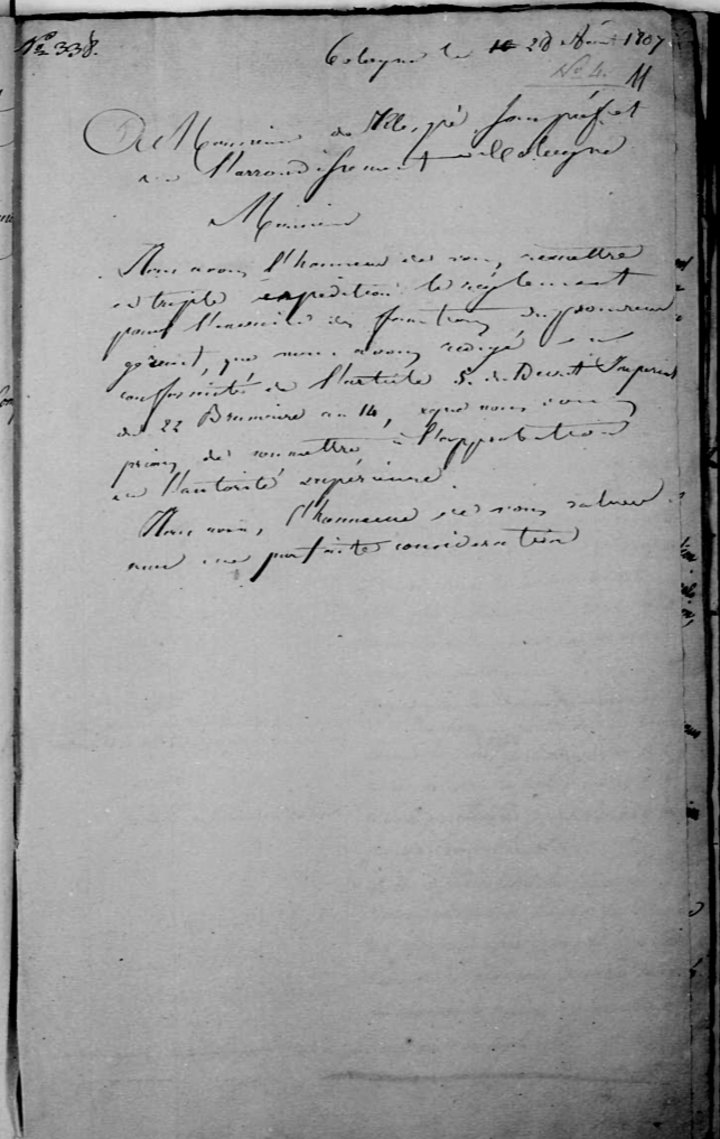 No 338.
Cologne le 28 Août 1807
No 4. 11
A Monsieur de Klespé Souspréfet
de l'arrondissement de Cologne
Monsieur
Nous avons l'honneur de vous remettre
en triple expédition le règlement
pour l'exercice des fonctions du procureur
gérant, que nous avons rédigé en
conformité de l'article 5. du Decret Imperial
du 22 Brumaire an 14, et que nous vous
prions de soumettre à l'approbation
de l'autorité supérieure.
Nous avons l'honneur de vous saluer
avec une parfaite consideration